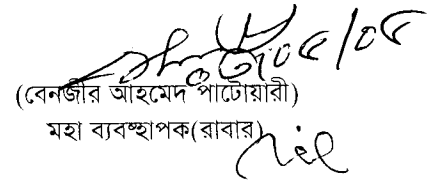 ০৫/০৫
(বেনজীর আহমেদ পাটোয়ারী)
মহা ব্যবস্হাপক(রাবার)